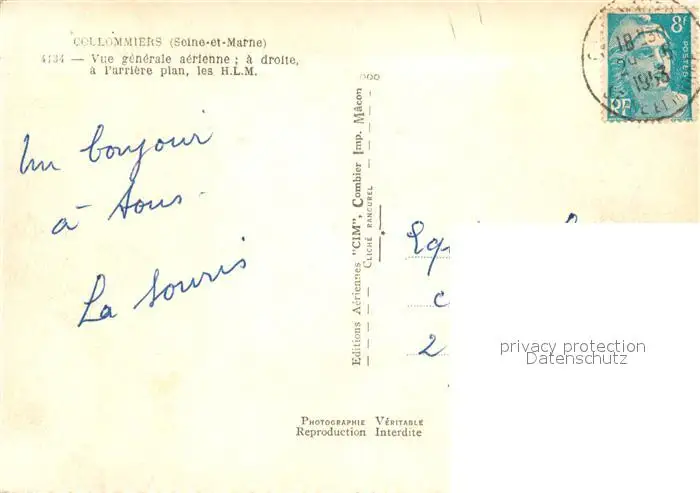 COLLOMMIERS (Seine-et-Marne)
4134 — Vue générale aérienne ; à droite,
à l'arrière plan, les H.L.M.
Un bonjour
à tous.
La Souris
Editions Aériennes "CIM", Combier Imp. Mâcon
CLICHÉ RANCUREL
PHOTOGRAPHIE VÉRITABLE
Reproduction Interdite
8F
POSTES
RF
1953
2
privacy protection
Datenschutz